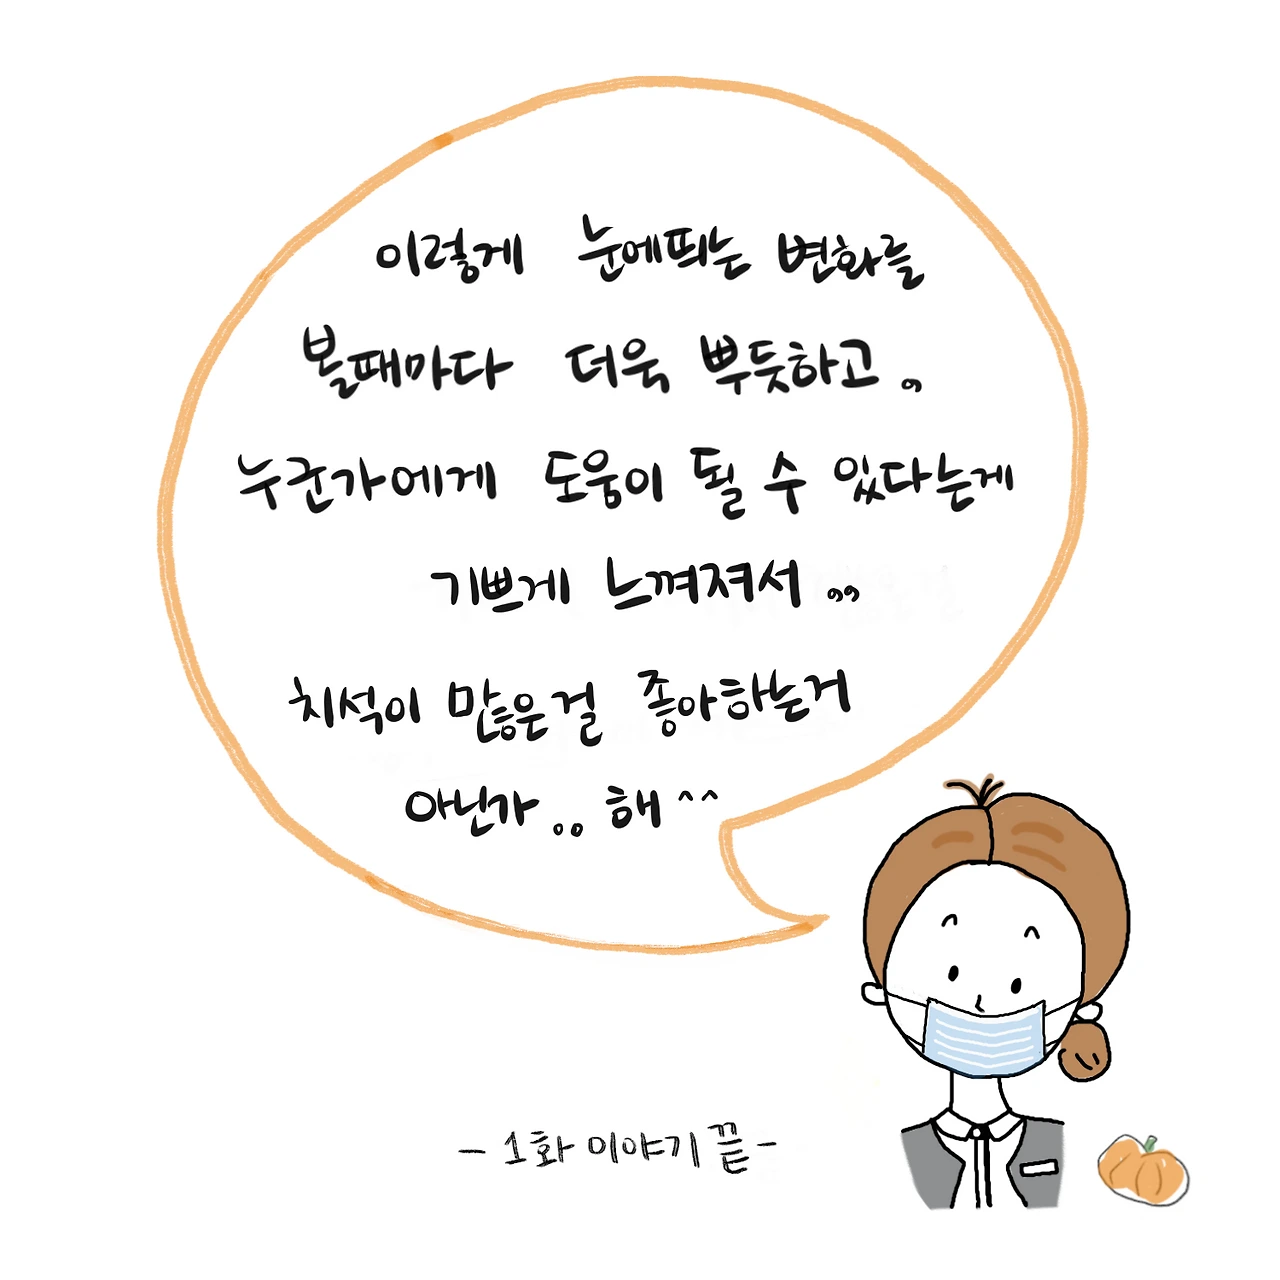 이렇게 눈에띄는 변화를
볼때마다 더욱 뿌듯하고 ,
누군가에게 도움이 될 수 있다는게
기쁘게 느껴져서 ,,
치석이 많은걸 좋아하는거
아닌가 .. 해 ^^
- 1화 이야기 끝 -